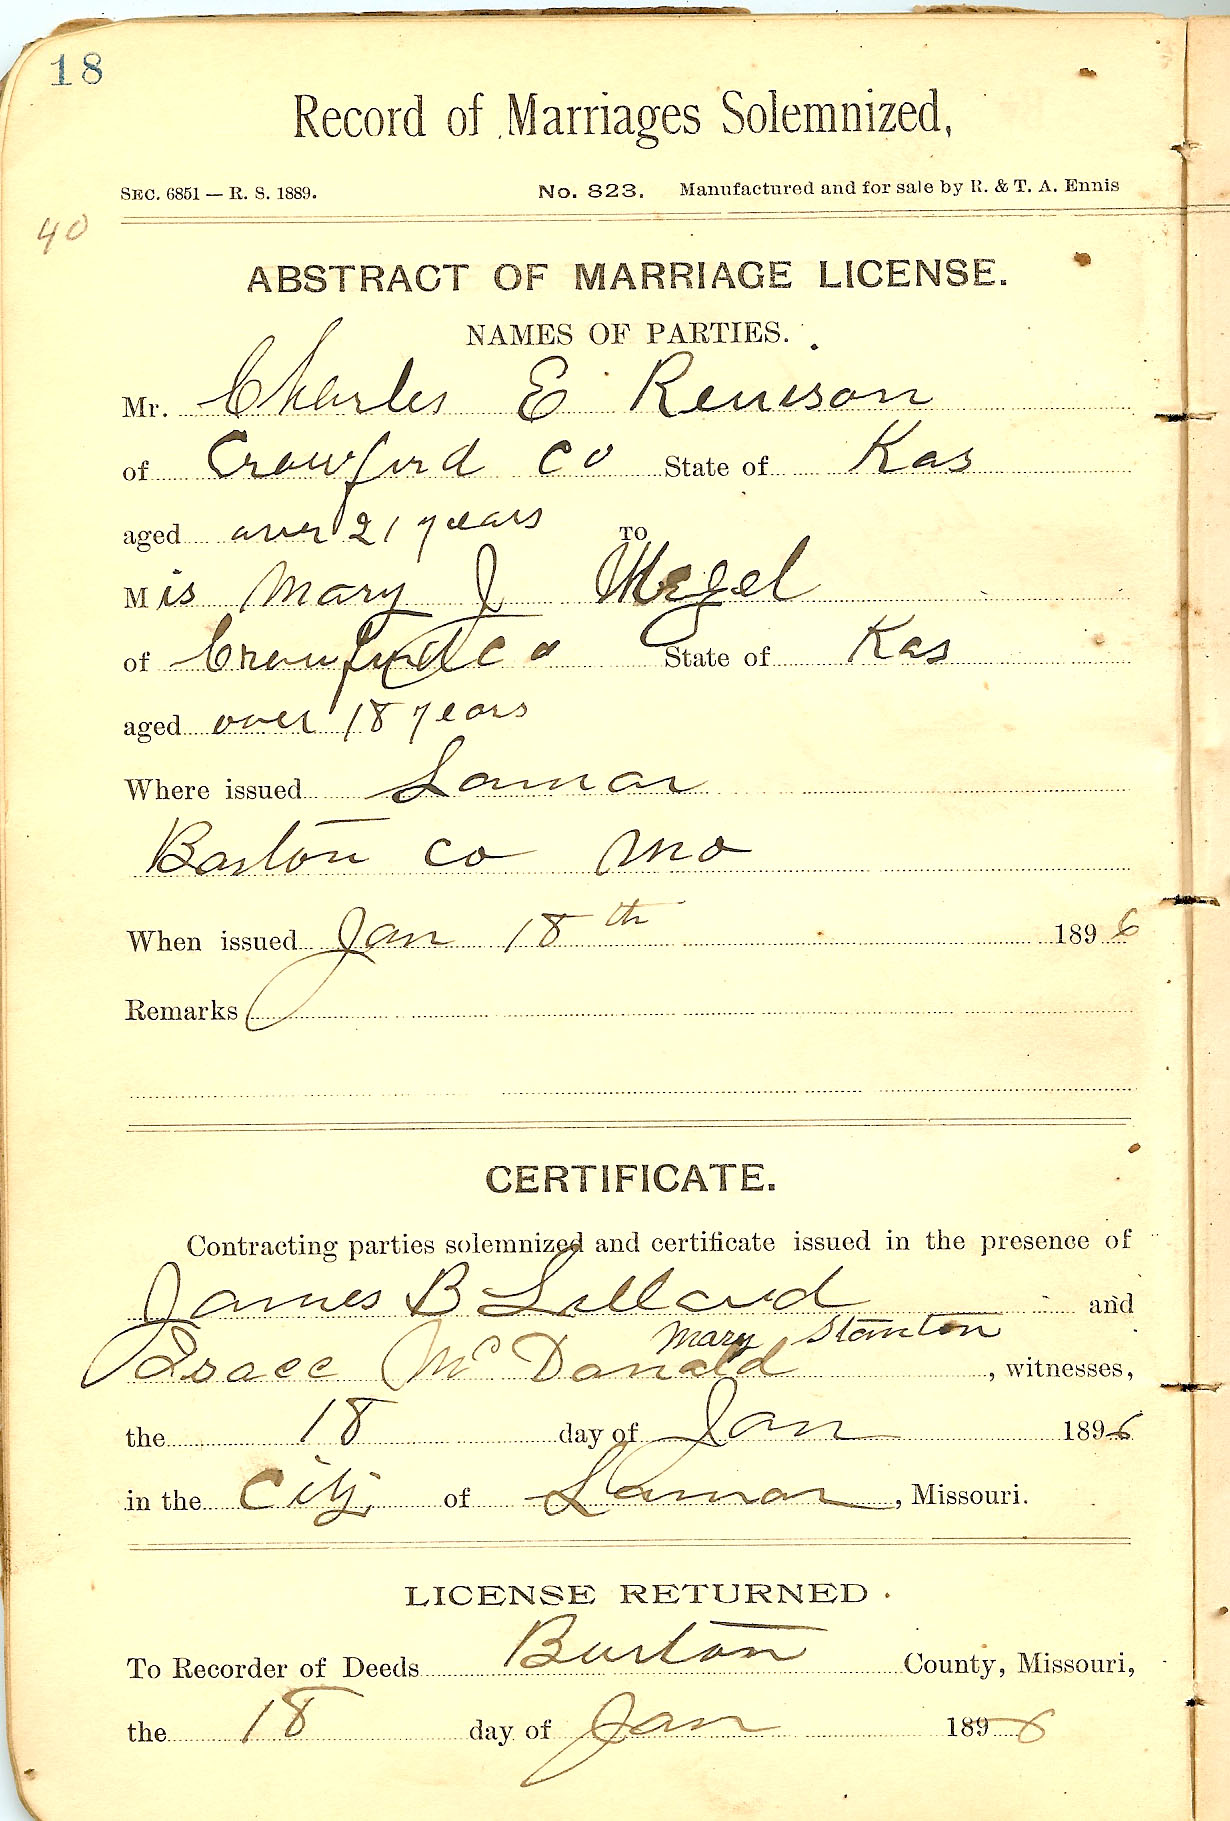 18
Record of Marriages Solemnized,
SEC. 6851 — R. S. 1889. No. 823. Manufactured and for sale by R. & T. A. Ennis
40
ABSTRACT OF MARRIAGE LICENSE.
NAMES OF PARTIES.
Mr. Charles E Renison
of Crawford Co State of Kas
aged over 21 years TO
Mis Mary J
of Crawford Co State of Kas
aged over 18 years
Where issued Lamar
Barton Co Mo
When issued Jan 18th 1896
Remarks
CERTIFICATE.
Contracting parties solemnized and certificate issued in the presence of
James B Lillard and
Mary Stanton
Isaac McDonald, witnesses,
the 18 day of Jan 1896
in the City of Lamar, Missouri.
LICENSE RETURNED
To Recorder of Deeds Barton County, Missouri,
the 18 day of Jan 1896